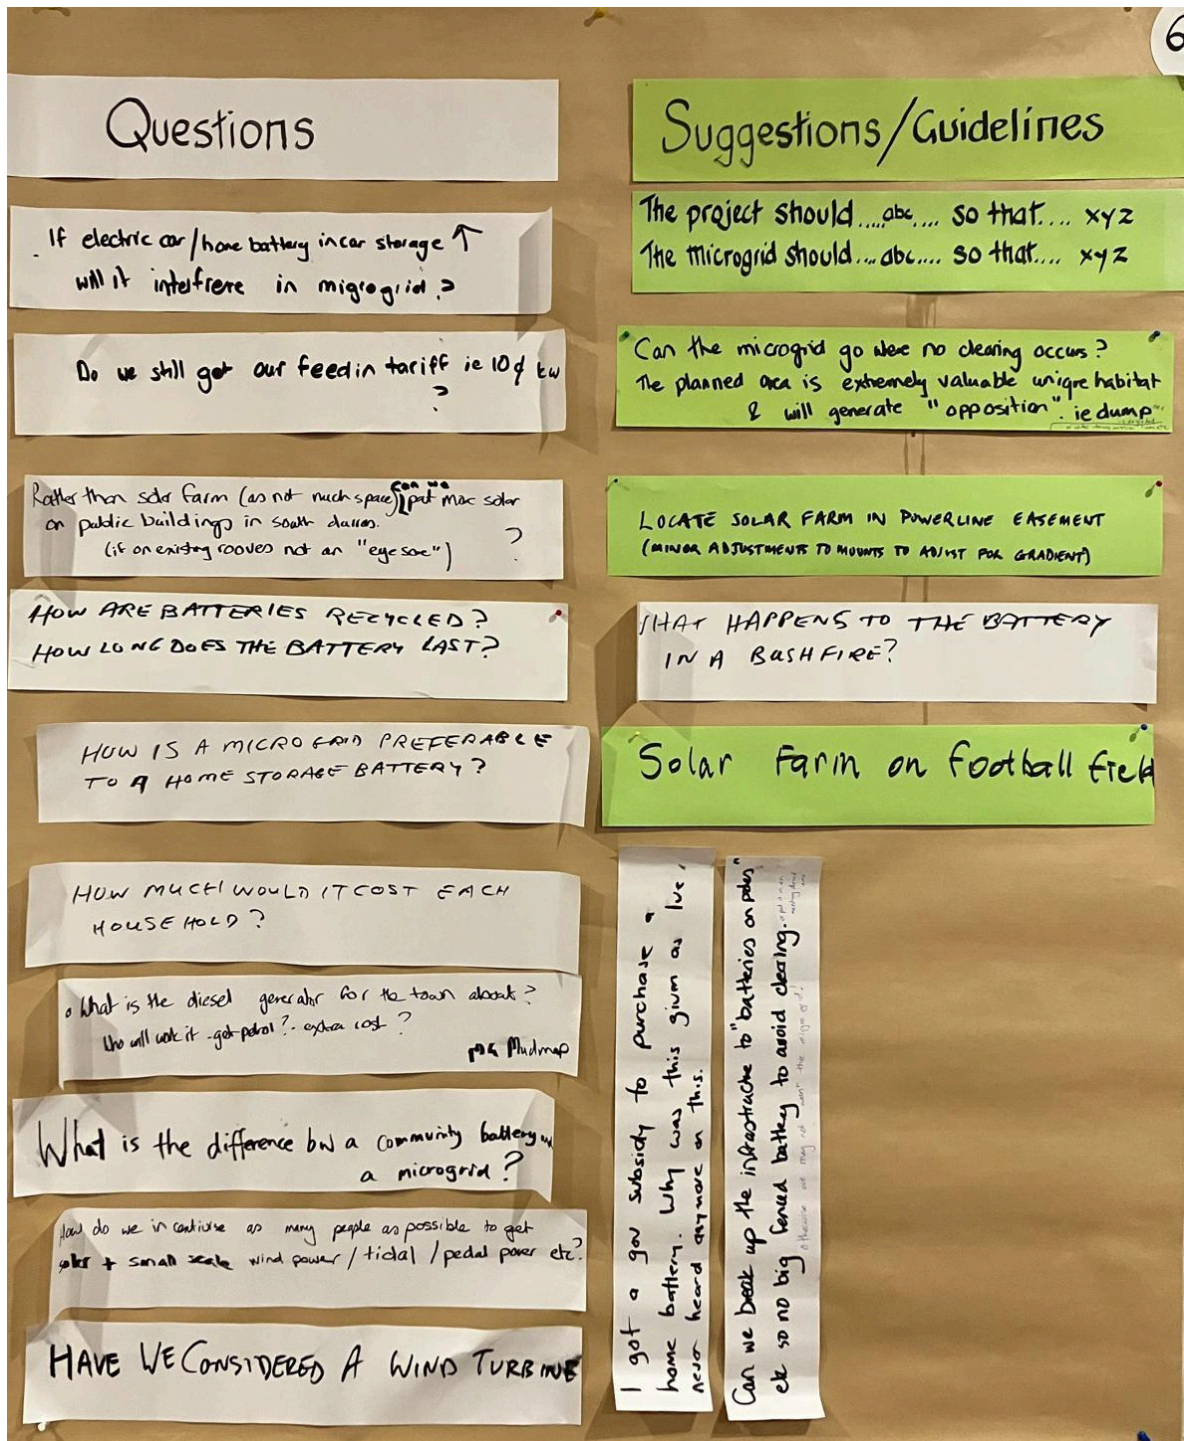 6
Questions
If electric car/home battery in car storage ↑
will it interfrere in migrogrid?
Do we still get our feed in tariff ie 10¢ kw
?
Rather than solar farm (as not much space) can we put more solar
on public buildings in south durras.
(if on existing rooves not an "eye sore")
?
HOW ARE BATTERIES RECYCLED?
HOW LONG DOES THE BATTERY LAST?
HOW IS A MICRO GRID PREFERABLE
TO A HOME STORAGE BATTERY?
HOW MUCH WOULD IT COST EACH
HOUSEHOLD?
What is the diesel generator for the town about?
Who will work it - get petrol? - extra cost?
Mudmap
What is the difference bw a community battery
a microgrid?
How do we incentivise as many people as possible to get
solar + small scale wind power / tidal / pedal power etc?
HAVE WE CONSIDERED A WIND TURBINE
Suggestions/Guidelines
The project should....abc.... so that.... xyz
The microgrid should....abc.... so that.... xyz
Can the microgrid go were no clearing occurs?
The planned area is extremely valuable unique habitat
& will generate "opposition". ie dump
LOCATE SOLAR FARM IN POWERLINE EASEMENT
(MINOR ADJUSTMENTS TO MOUNTS TO ADJUST FOR GRADIENT)
WHAT HAPPENS TO THE BATTERY
IN A BUSHFIRE?
Solar Farm on football field
I got a gov subsidy to purchase a
home battery. Why was this given as Ive,
never heard anymore on this.
Can we break up the infrastructre to "batteries on poles"
etc so no big fenced battery to avoid clearing.
otherwise we may not "want" the